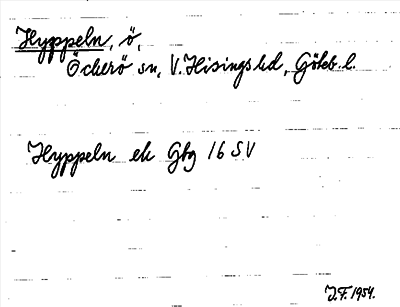 Hyppeln, ö,
Öckerö sn, V. Hisings hd, Göteb. l.
Hyppeln ek Gbg 16 SV
J.F. 1954.